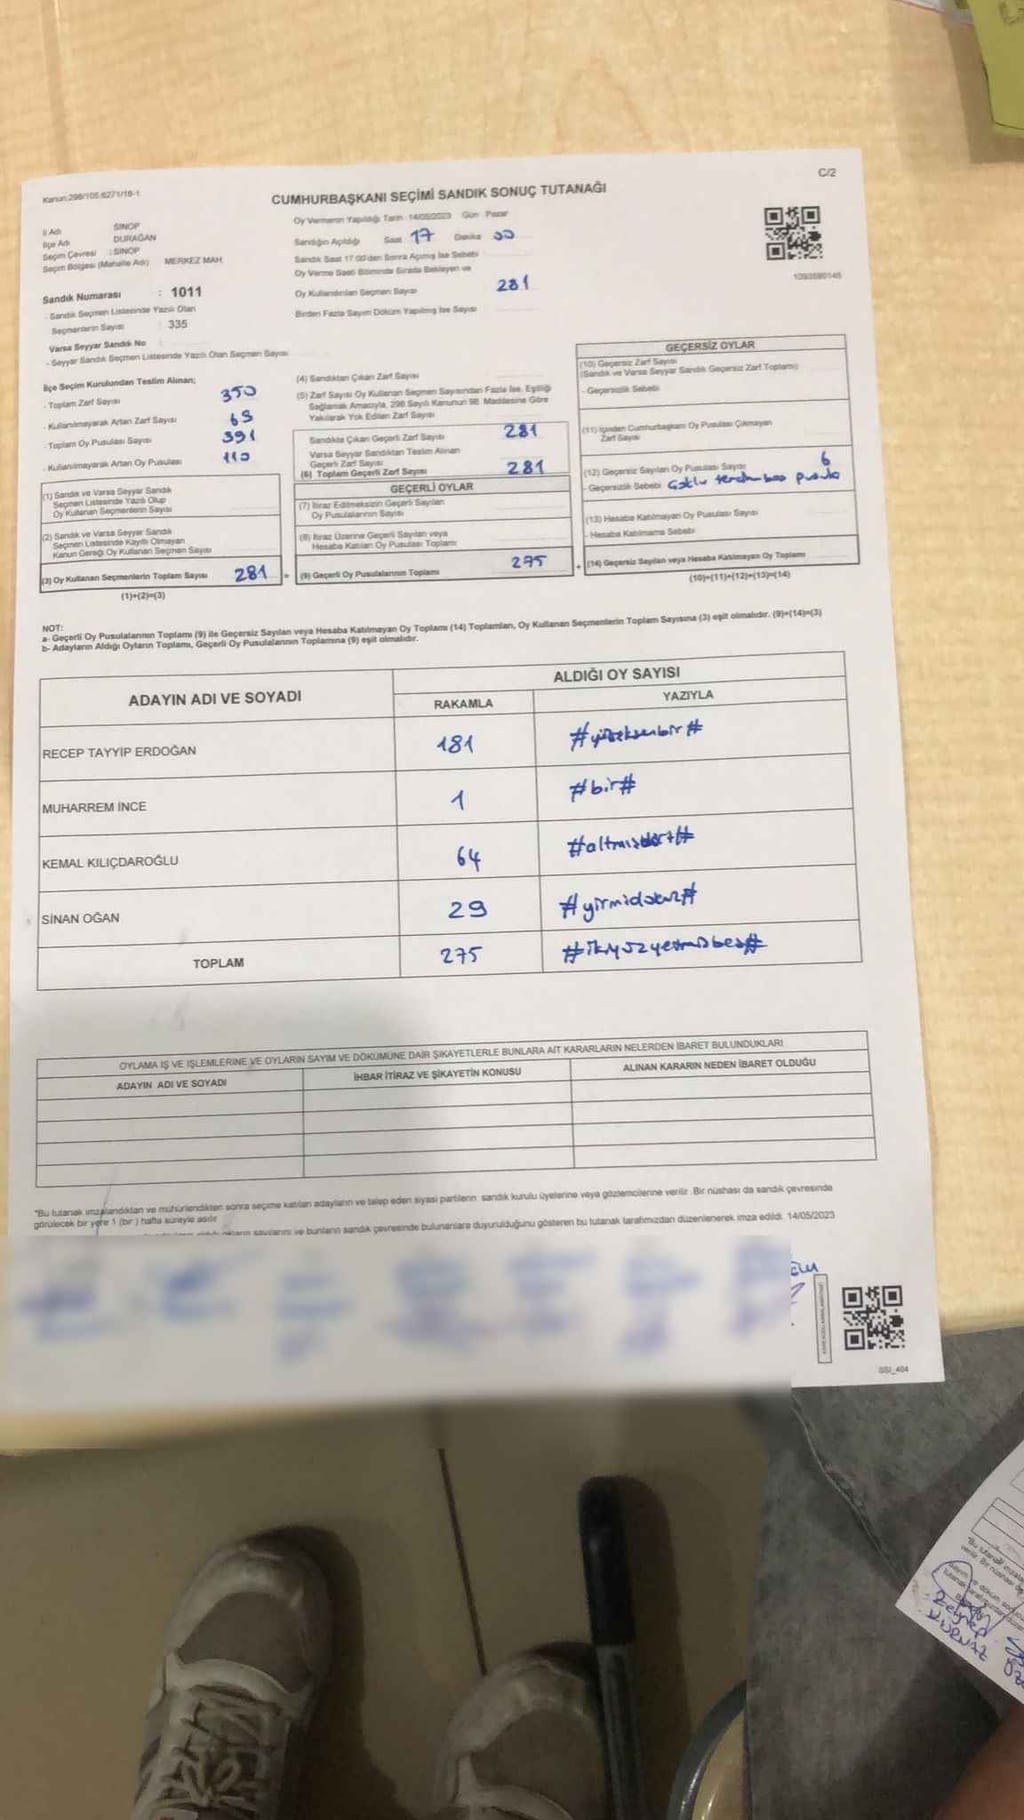 Kanun:298/105;6271/18-1
C/2
CUMHURBAŞKANI SEÇİMİ SANDIK SONUÇ TUTANAĞI
İl Adı SİNOP
İlçe Adı DURAĞAN
Seçim Çevresi : SİNOP
Seçim Bölgesi (Mahalle Adı) MERKEZ MAH
Oy Vermenin Yapıldığı Tarih 14/05/2023 Gün Pazar
Sandığın Açıldığı Saat 17 Dakika 00
Sandık Saat 17:00'den Sonra Açılmış İse Sebebi
Oy Verme Saati Bitiminde Sırada Bekleyen ve
Oy Kullandırılan Seçmen Sayısı 281
Birden Fazla Sayım Döküm Yapılmış İse Sayısı
Sandık Numarası : 1011
- Sandık Seçmen Listesinde Yazılı Olan
Seçmenlerin Sayısı : 335
Varsa Seyyar Sandık No
- Seyyar Sandık Seçmen Listesinde Yazılı Olan Seçmen Sayısı
İlçe Seçim Kurulundan Teslim Alınan;
- Toplam Zarf Sayısı 350
- Kullanılmayarak Artan Zarf Sayısı 69
- Toplam Oy Pusulası Sayısı 391
- Kullanılmayarak Artan Oy Pusulası 110
(1) Sandık ve Varsa Seyyar Sandık
Seçmen Listesinde Yazılı Olup
Oy Kullanan Seçmenlerin Sayısı
(2) Sandık ve Varsa Seyyar Sandık
Seçmen Listesinde Kayıtlı Olmayan
Kanun Gereği Oy Kullanan Seçmen Sayısı
(3) Oy Kullanan Seçmenlerin Toplam Sayısı 281
(1)+(2)=(3)
(4) Sandıktan Çıkan Zarf Sayısı
(5) Zarf Sayısı Oy Kullanan Seçmen Sayısından Fazla İse, Eşitliği
Sağlamak Amacıyla, 298 Sayılı Kanunun 98. Maddesine Göre
Yakılarak Yok Edilen Zarf Sayısı
Sandıkta Çıkan Geçerli Zarf Sayısı 281
Varsa Seyyar Sandıktan Teslim Alınan
Geçerli Zarf Sayısı
(6) Toplam Geçerli Zarf Sayısı 281
GEÇERLİ OYLAR
(7) İtiraz Edilmeksizin Geçerli Sayılan
Oy Pusulalarının Sayısı
(8) İtiraz Üzerine Geçerli Sayılan veya
Hesaba Katılan Oy Pusulası Toplamı
(9) Geçerli Oy Pusulalarının Toplamı 275
GEÇERSİZ OYLAR
(10) Geçersiz Zarf Sayısı
(Sandık ve Varsa Seyyar Sandık Geçersiz Zarf Toplamı)
- Geçersizlik Sebebi
(11) İçinden Cumhurbaşkanı Oy Pusulası Çıkmayan
Zarf Sayısı
(12) Geçersiz Sayılan Oy Pusulası Sayısı 6
- Geçersizlik Sebebi pusula
(13) Hesaba Katılmayan Oy Pusulası Sayısı
- Hesaba Katılmama Sebebi
(14) Geçersiz Sayılan veya Hesaba Katılmayan Oy Toplamı
(10)+(11)+(12)+(13)=(14)
NOT:
a- Geçerli Oy Pusulalarının Toplamı (9) ile Geçersiz Sayılan veya Hesaba Katılmayan Oy Toplamı (14) Toplamları, Oy Kullanan Seçmenlerin Toplam Sayısına (3) eşit olmalıdır. (9)+(14)=(3)
b- Adayların Aldığı Oyların Toplamı, Geçerli Oy Pusulalarının Toplamına (9) eşit olmalıdır.
ADAYIN ADI VE SOYADI ALDIĞI OY SAYISI
RAKAMLA YAZIYLA
RECEP TAYYİP ERDOĞAN 181 #yüzseksenbir#
MUHARREM İNCE 1 #bir#
KEMAL KILIÇDAROĞLU 64 #altmışdört#
SİNAN OĞAN 29 #yirmidokuz#
TOPLAM 275 #ikiyüzyetmişbeş#
OYLAMA İŞ VE İŞLEMLERİNE VE OYLARIN SAYIM VE DÖKÜMÜNE DAİR ŞİKAYETLERLE BUNLARA AİT KARARLARIN NELERDEN İBARET BULUNDUKLARI
ADAYIN ADI VE SOYADI İHBAR İTİRAZ VE ŞİKAYETİN KONUSU ALINAN KARARIN NEDEN İBARET OLDUĞU
*Bu tutanak imzalandıktan ve mühürlendikten sonra seçime katılan adayların ve talep eden siyasi partilerin sandık kurulu üyelerine veya gözlemcilerine verilir. Bir nüshası da sandık çevresinde
görülecek bir yere 1 (bir) hafta süreyle asılır
sayılarını ve bunların sandık çevresinde bulunanlara duyurulduğunu gösteren bu tutanak tarafımızdan düzenlenerek imza edildi. 14/05/2023
Zeynep
KURNAZ